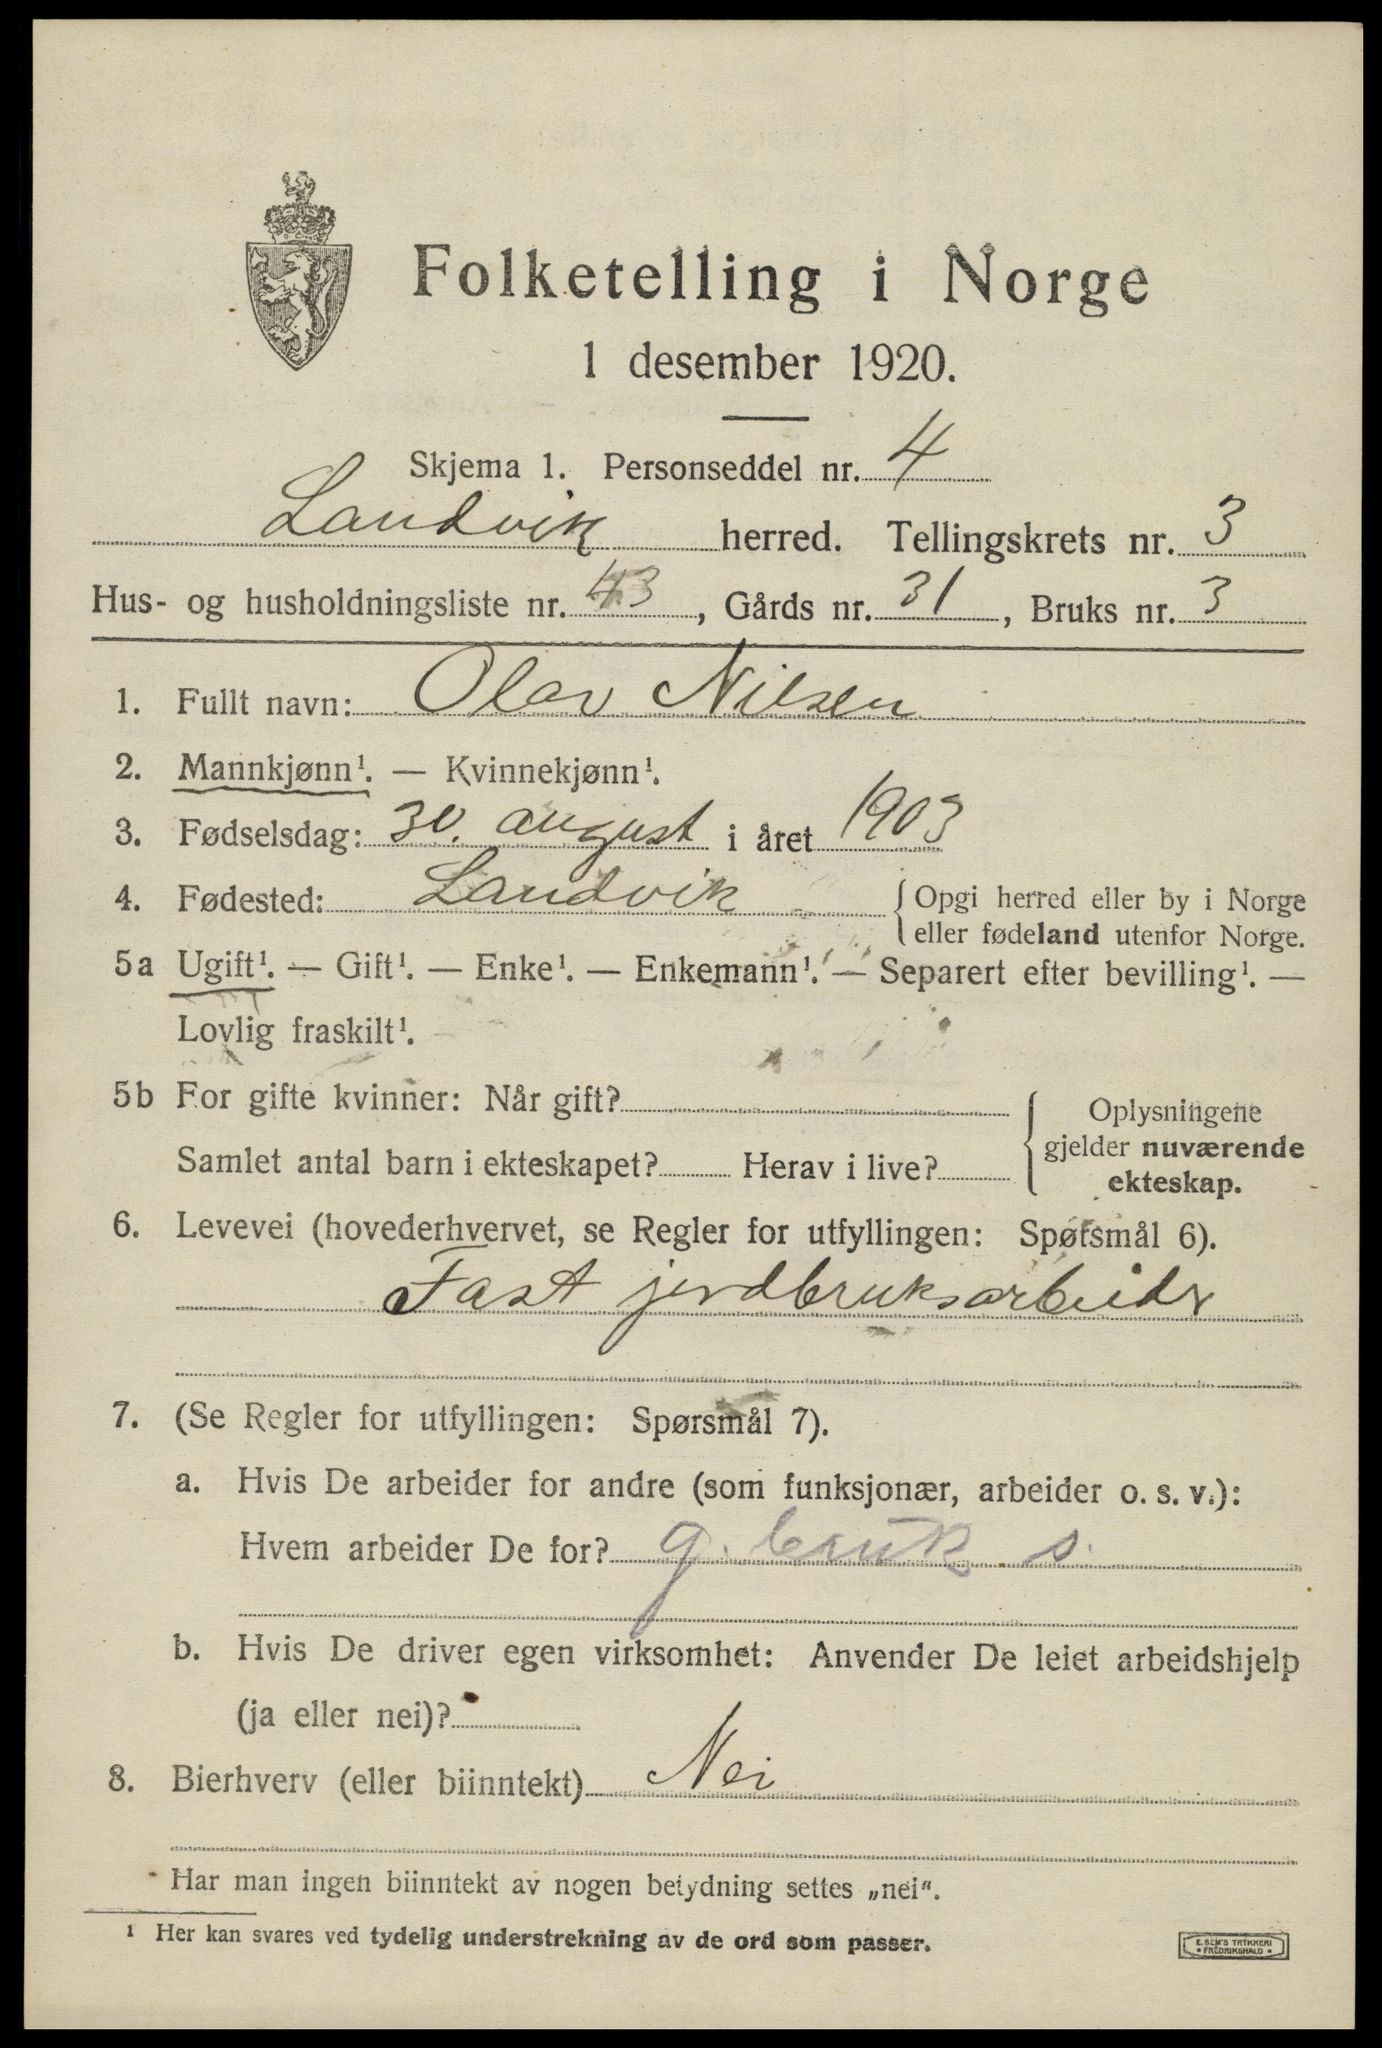 Folketelling i Norge
1 desember 1920.
Skjema 1. Personseddel nr. 4
Landvik herred. Tellingskrets nr. 3
Hus- og husholdningsliste nr. 43, Gårds nr. 31, Bruks nr. 3
1. Fullt navn: Olav Nilsen
2. Mannkjønn¹. — Kvinnekjønn¹.
3. Fødselsdag: 30. august i året 1903
4. Fødested: Landvik { Opgi herred eller by i Norge
eller fødeland utenfor Norge.
5a Ugift¹. — Gift¹. — Enke¹. — Enkemann¹. — Separert efter bevilling¹. —
Lovlig fraskilt¹.
5b For gifte kvinner: Når gift?
Samlet antal barn i ekteskapet? Herav i live?
{ Oplysningene
gjelder nuværende
ekteskap.
6. Levevei (hovederhvervet, se Regler for utfyllingen: Spørsmål 6).
Fast jordbruksarbeider
7. (Se Regler for utfyllingen: Spørsmål 7).
a. Hvis De arbeider for andre (som funksjonær, arbeider o. s. v.):
Hvem arbeider De for? g. bruk s.
b. Hvis De driver egen virksomhet: Anvender De leiet arbeidshjelp
(ja eller nei)?
8. Bierhverv (eller biinntekt) Nei
Har man ingen biinntekt av nogen betydning settes „nei".
¹ Her kan svares ved tydelig understrekning av de ord som passer.
E. SEM'S TRYKKERI
• FREDRIKSHALD •